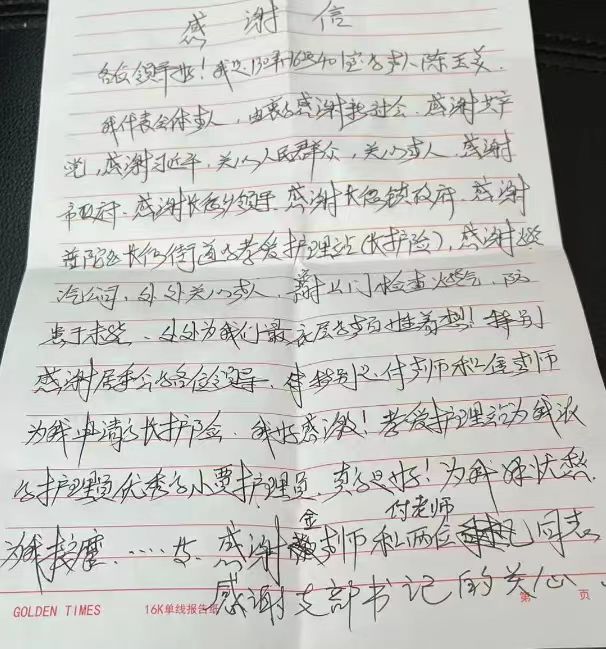 感谢信
各位领导好！我是130弄16号401室老人陈玉英.
我代表全体老人，由衷的感谢新社会.感谢共产
党，感谢习近平，关心人民群众，关心老人.感谢
市政府.感谢长征乡领导.感谢长征镇政府.感谢
普陀区长征街道老爱护理站(长护险)，感谢燃
汽公司，处处关心老人，上门检查燃气，防
患于未然、处处为我们最底层老百姓着想！特别
感谢居委会各位领导.特别是付老师和金老师
为我申请了长护险.我好感激！老爱护理站为我派
了护理员优秀的小贾护理员，真是好！为我
为我按摩.……
感谢金老师和付老师两位同志
感谢支部书记的关心.
GOLDEN TIMES 16K单线报告纸 第 页